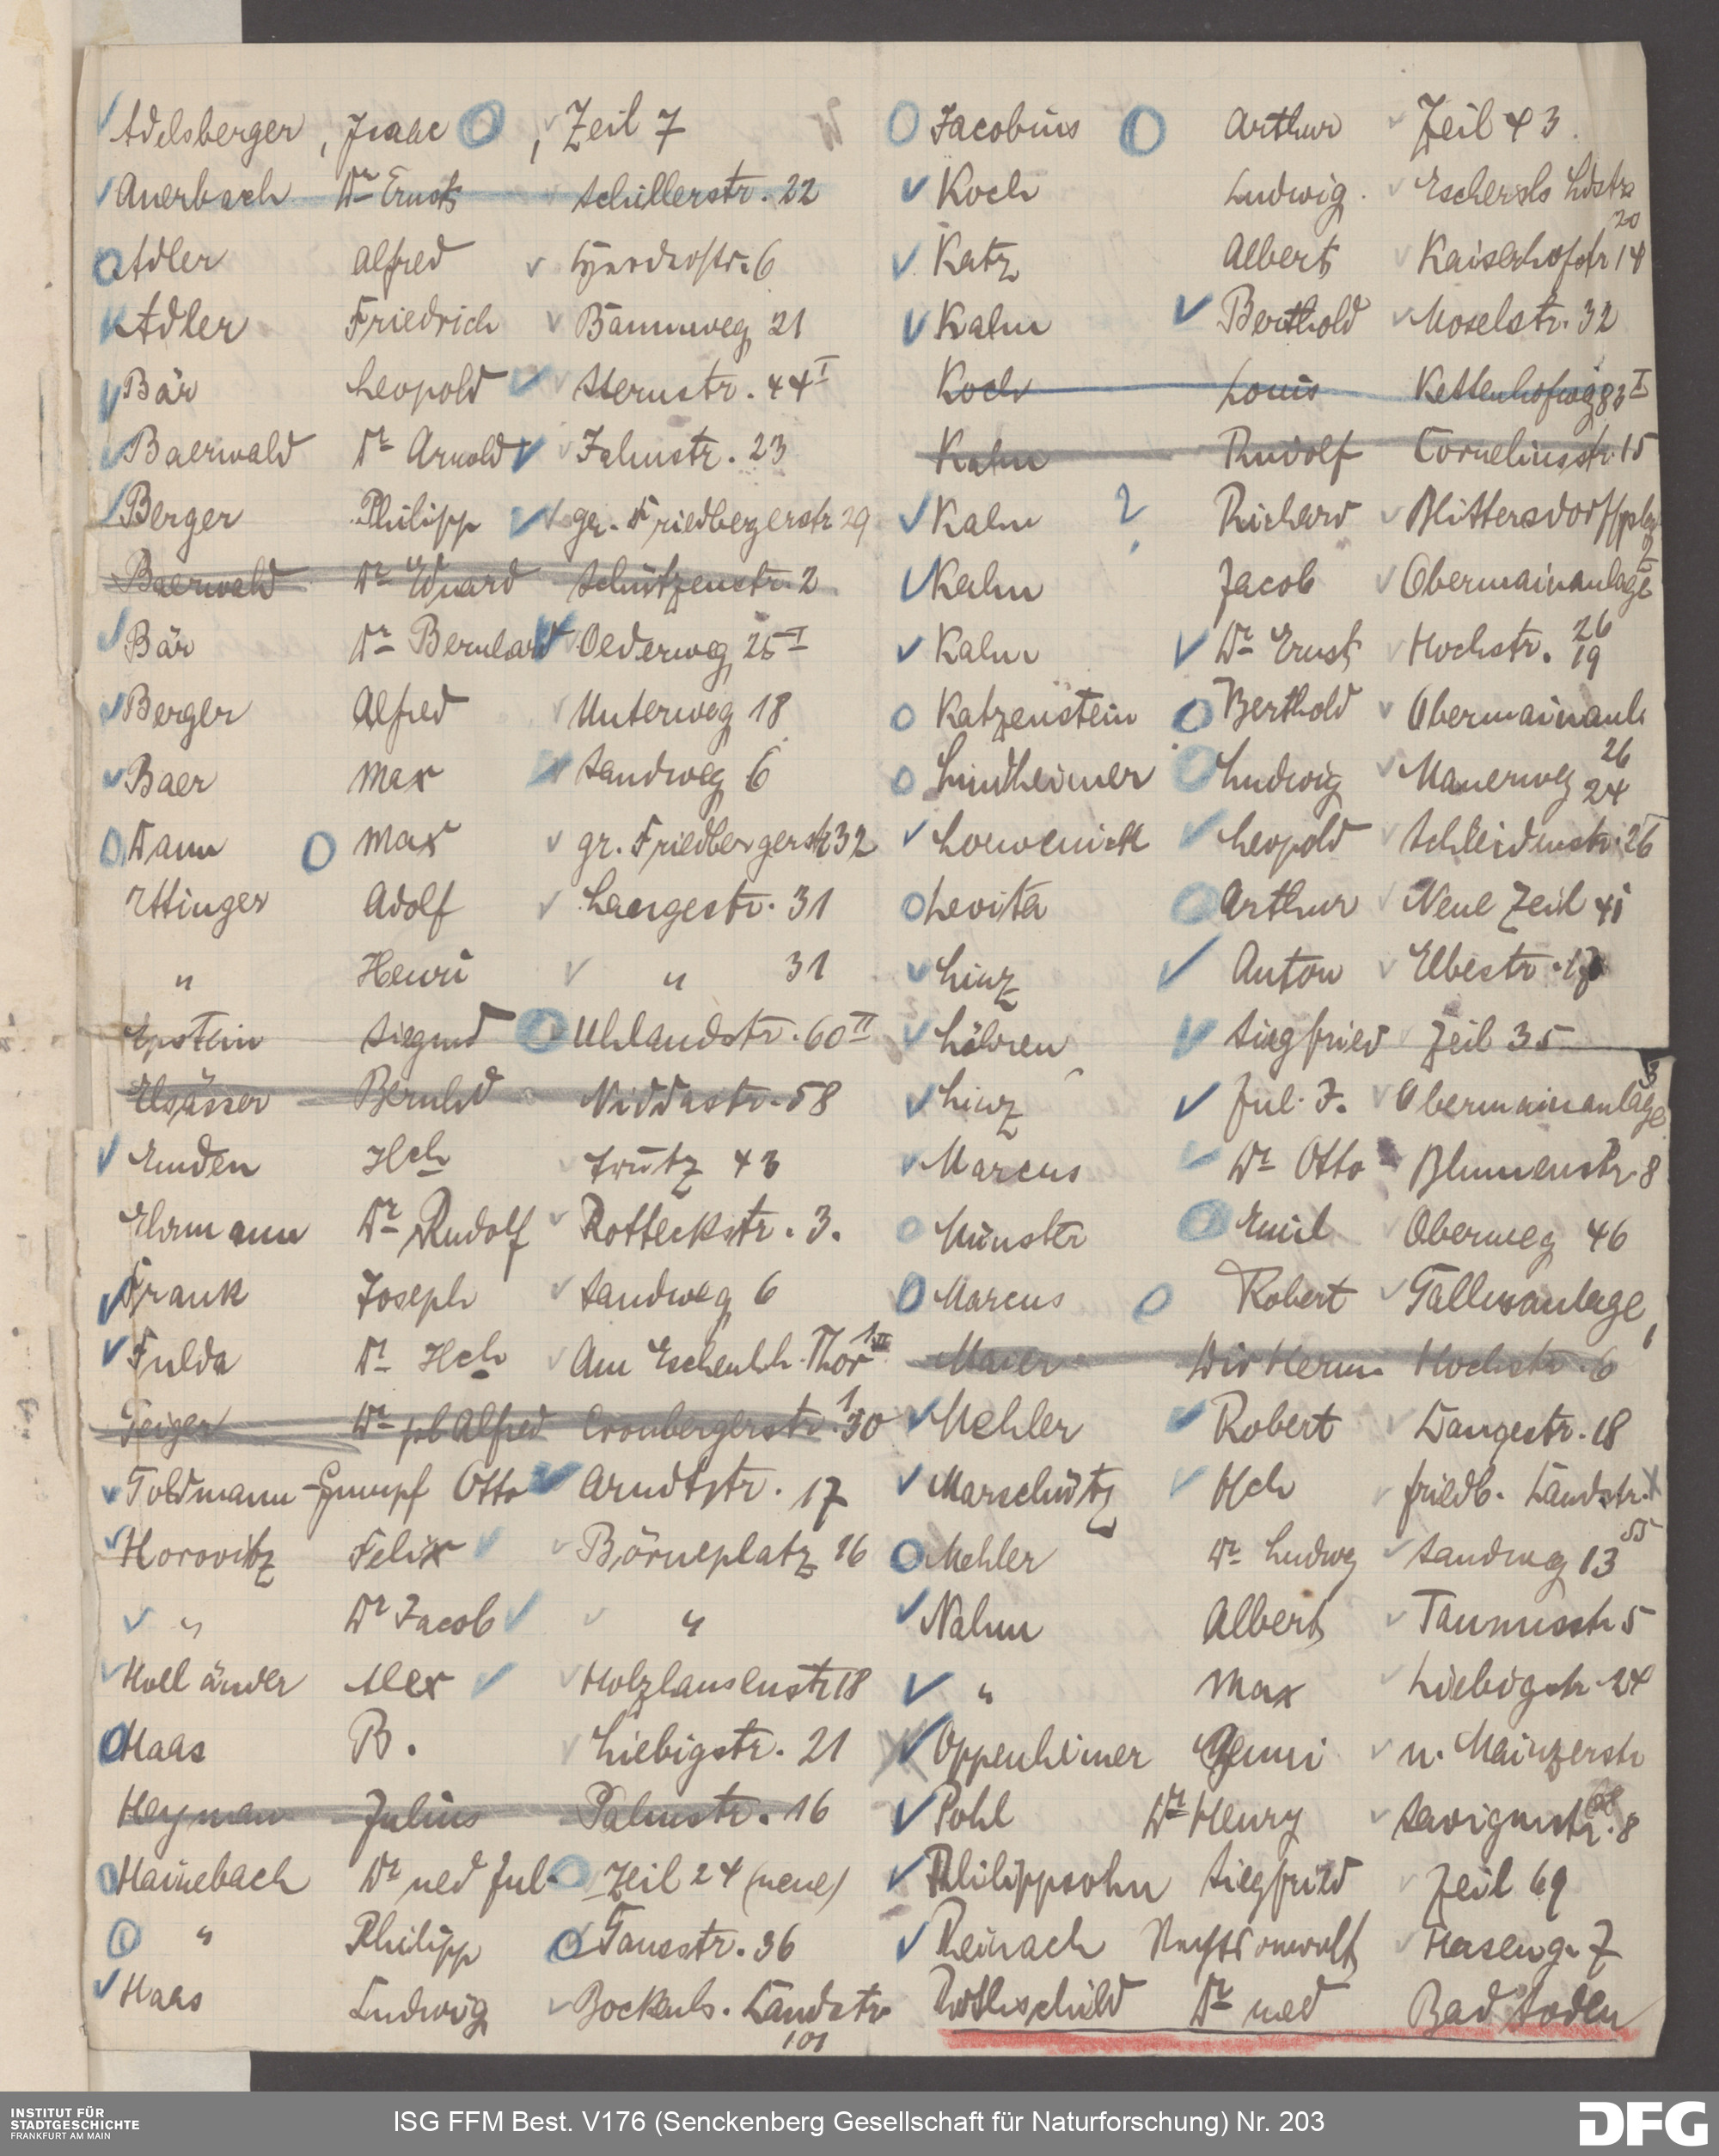 Adelsberger, Isaac, Zeil 7
Auerbach Dr Ernst Schillerstr. 22
Adler Alfred 6
Adler Friedrich Bäumweg 21
Bär Leopold Sternstr. 44 I
Baerwald Dr Arnold Jahnstr. 23
Berger Philipp gr. Friedbergerstr 29
Baerwald Dr Eduard Schützenstr. 2
Bär Dr Bernhard Oederweg 25 I
Berger Alfred Unterweg 18
Baer Max Sandweg 6
Dann Max gr. Friedbergerstr 32
Ettinger Adolf Langestr. 31
" Henri " 31
Epstein Siegmd Uhlandstr. 60 II
Elsässer Bernhd Niddastr. 58
Emden Hch Trutz 43
Ehrmann Dr Rudolf Rotteckstr. 3.
Frank Joseph Sandweg 6
Fulda Dr Hch Am Eschenhh. Thor 1 III
Geiger Dr phl Alfred Cronbergerstr. 30
Goldmann-Gumpf Otto Arndtstr. 17
Horovitz Felix Börneplatz 16
" Dr Jacob "
Holländer Alex Holzhausenstr 18
Haas B. Liebigstr. 21
Heyman Julius Palmstr. 16
Hainebach Dr med Jul. Zeil 24 (neue)
" Philipp Gausstr. 36
Haas Ludwig Bockenh. Landstr
101
Jacobius Arthur Zeil 43.
Koch Ludwig. Eschersh Ldstr
20
Katz Albert Kaiserhofstr 14
Kahn Berthold Moselstr. 32
Koch Louis Kettenhofweg 83 I
Kahn Rudolf Corneliusstr. 15
Kahn ? Richard Blittersdorffplatz
Kahn Jacob Obermainanlage
26
Kahn Dr Ernst Hochstr. 19
Katzenstein Berthold Obermainanl.
26
Lindheimer Ludwig Mauerweg 24
Loewenick Leopold Schleidenstr. 26
Levita Arthur Neue Zeil 41
Linz Anton Elbestr.
Löhren Siegfried Zeil 35
3
Linz Jul. J. Obermainanlage
Marcus Dr Otto Blumenstr. 8
Münster Emil Oberweg 46
Marcus Robert Gallusanlage
1
Maier Dir Herm. Hochstr. 6
Mehler Robert Langestr. 18
Marschütz Hch friedb. Landstr.
55
Mehler Dr Ludwg Sandweg 13
Nahm Albert Taunusstr 5
" Max Liebigstr. 24
Oppenheimer n. Mainzerstr
Pohl Dr Henry Savignystr. 8
Philippsohn Siegfried Zeil 69
Reinach Rechtsanwalt Haseng. 7
Rothschild Dr med Bad Soden
INSTITUT FÜR
STADTGESCHICHTE
FRANKFURT AM MAIN
ISG FFM Best. V176 (Senckenberg Gesellschaft für Naturforschung) Nr. 203
DFG